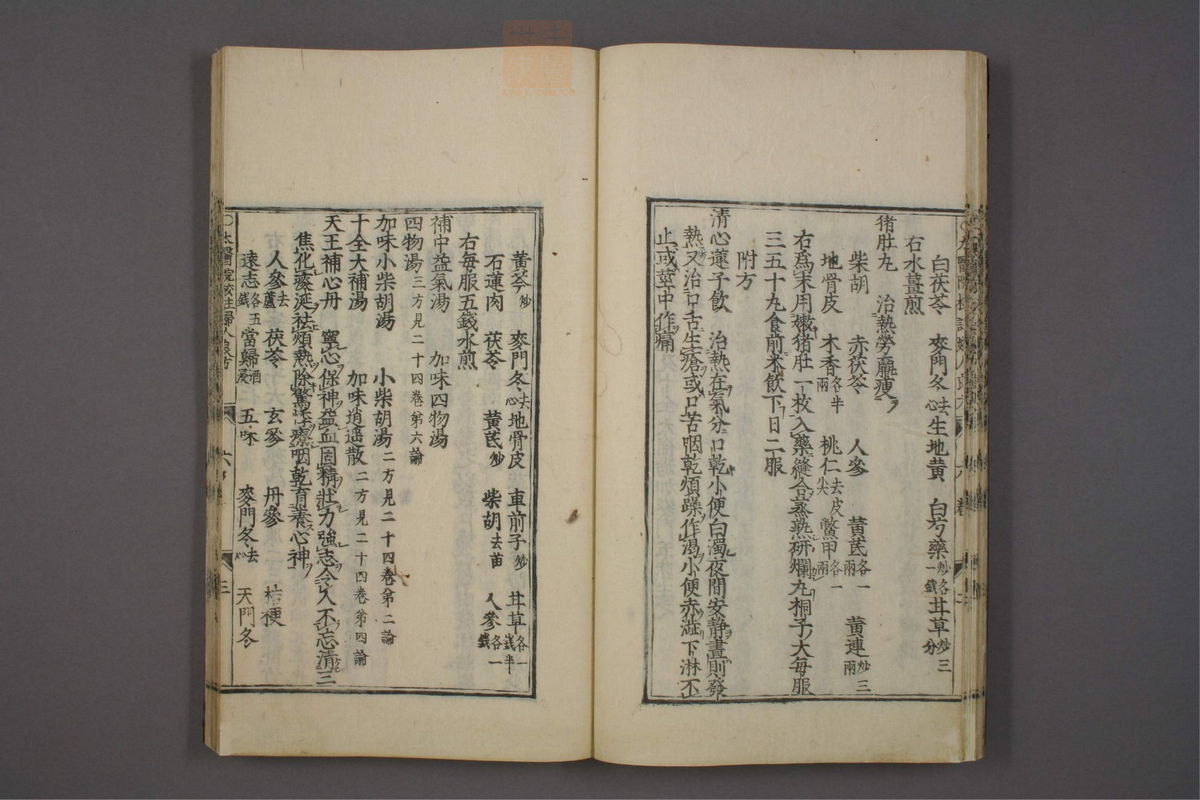 白茯苓　麥門冬去心生地黃　白芍藥炒各一錢甘草炒三分
右水薑煎
猪肚丸　治熱勞羸瘦
柴胡　赤茯苓　人參　黃芪各一兩　黃連炒三兩
地骨皮　木香各半兩　桃仁去皮尖　鱉甲各一兩
右爲末用嫩猪肚一枚入藥縫合蒸熟研爛丸桐子大每服
三五十丸食前米飮下日二服
附方
清心蓮子飮　治熱在氣分口乾小便白濁夜間安靜晝則發
熱又治口舌生瘡或口苦咽乾煩躁作渴小便赤澁下淋不
止或莖中作痛
黃芩炒　麥門冬去心地骨皮　車前子炒　甘草各一錢半
石蓮肉　茯苓　黃芪炒　柴胡去苗　人參各一錢
右每服五錢水煎
補中益氣湯　加味四物湯
四物湯三方見二十四卷第六論
加味小柴胡湯　小柴胡湯二方見二十四卷第二論
十全大補湯　加味逍遙散二方見二十四卷第四論
天王補心丹　寧心保神益血固精壯力強志令人不忘清三
焦化痰涎祛煩熱除驚悸療咽乾育養心神
人參去蘆　茯苓　玄參　丹參　桔梗
遠志各五錢當歸酒浸　五味　麥門冬去心　天門冬
〇太醫院校註婦人良方　六　三